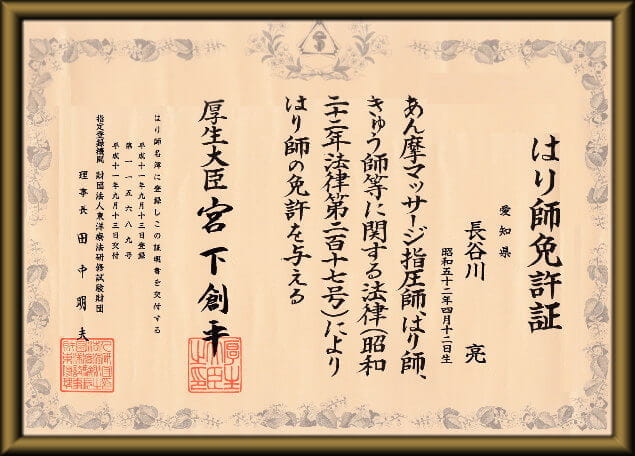 はり師免許証
愛知県
長谷川 亮
昭和五十二年四月十二日生
あん摩マッサージ指圧師、はり師、
きゅう師等に関する法律(昭和
二十二年法律第二百十七号)により
はり師の免許を与える
厚生大臣 宮下創平
はり師名簿に登録しこの証明書を交付する
平成十一年九月十三日登録
第一一五六八九号
平成十一年九月十三日交付
指定登録機関 財団法人東洋療法研修試験財団
理事長 田中明夫